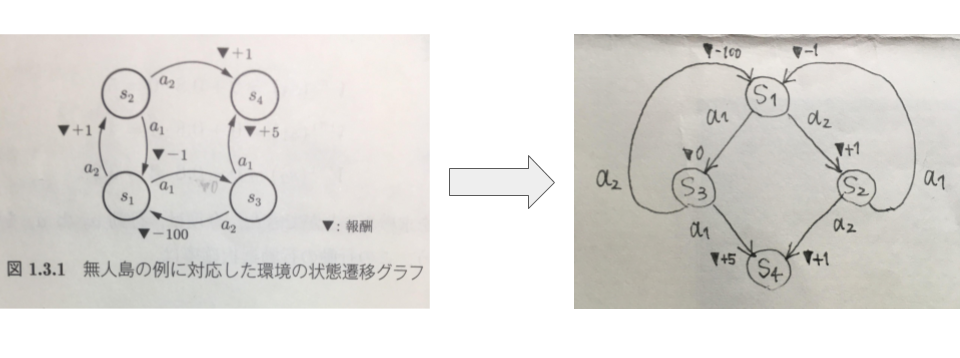 ▼+1
s2
a2
s4
▼+1
a1
▼+5
▼-1
a2
a1
a1
▼0
s1
s3
a2
▼-100
▼: 報酬
図 1.3.1 無人島の例に対応した環境の状態遷移グラフ
▼-100
▼-1
S1
a1
a2
▼0
▼+1
a2
S3
S2
a1
a1
a2
▼+5
▼+1
S4